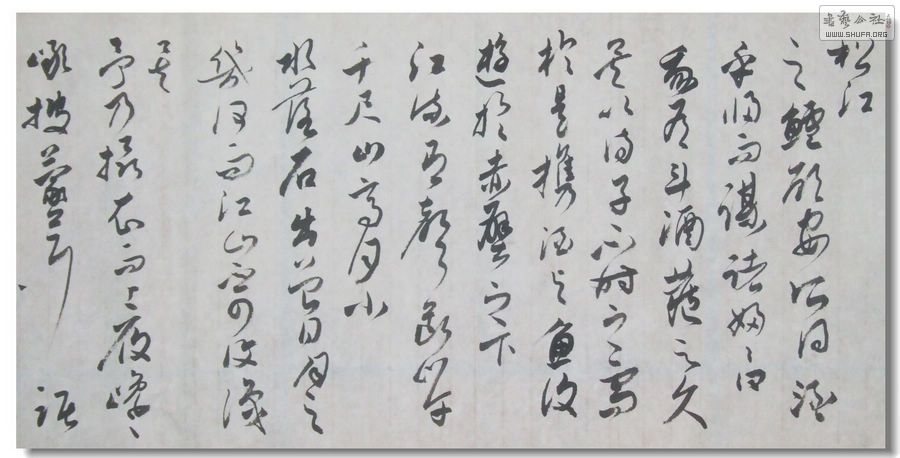 書藝公社
WWW.SHUFA.ORG
松江
之鱸顧安所得酒
乎歸而謀諸婦々曰
我有斗酒藏之久
矣以待子不時之需
於是攜酒與魚復
遊於赤壁之下
江流有聲斷岸
千尺山高月小
水落石出曾日月之
幾何而江山不可復識
矣
予乃攝衣而上履巉
巖披蒙茸踞